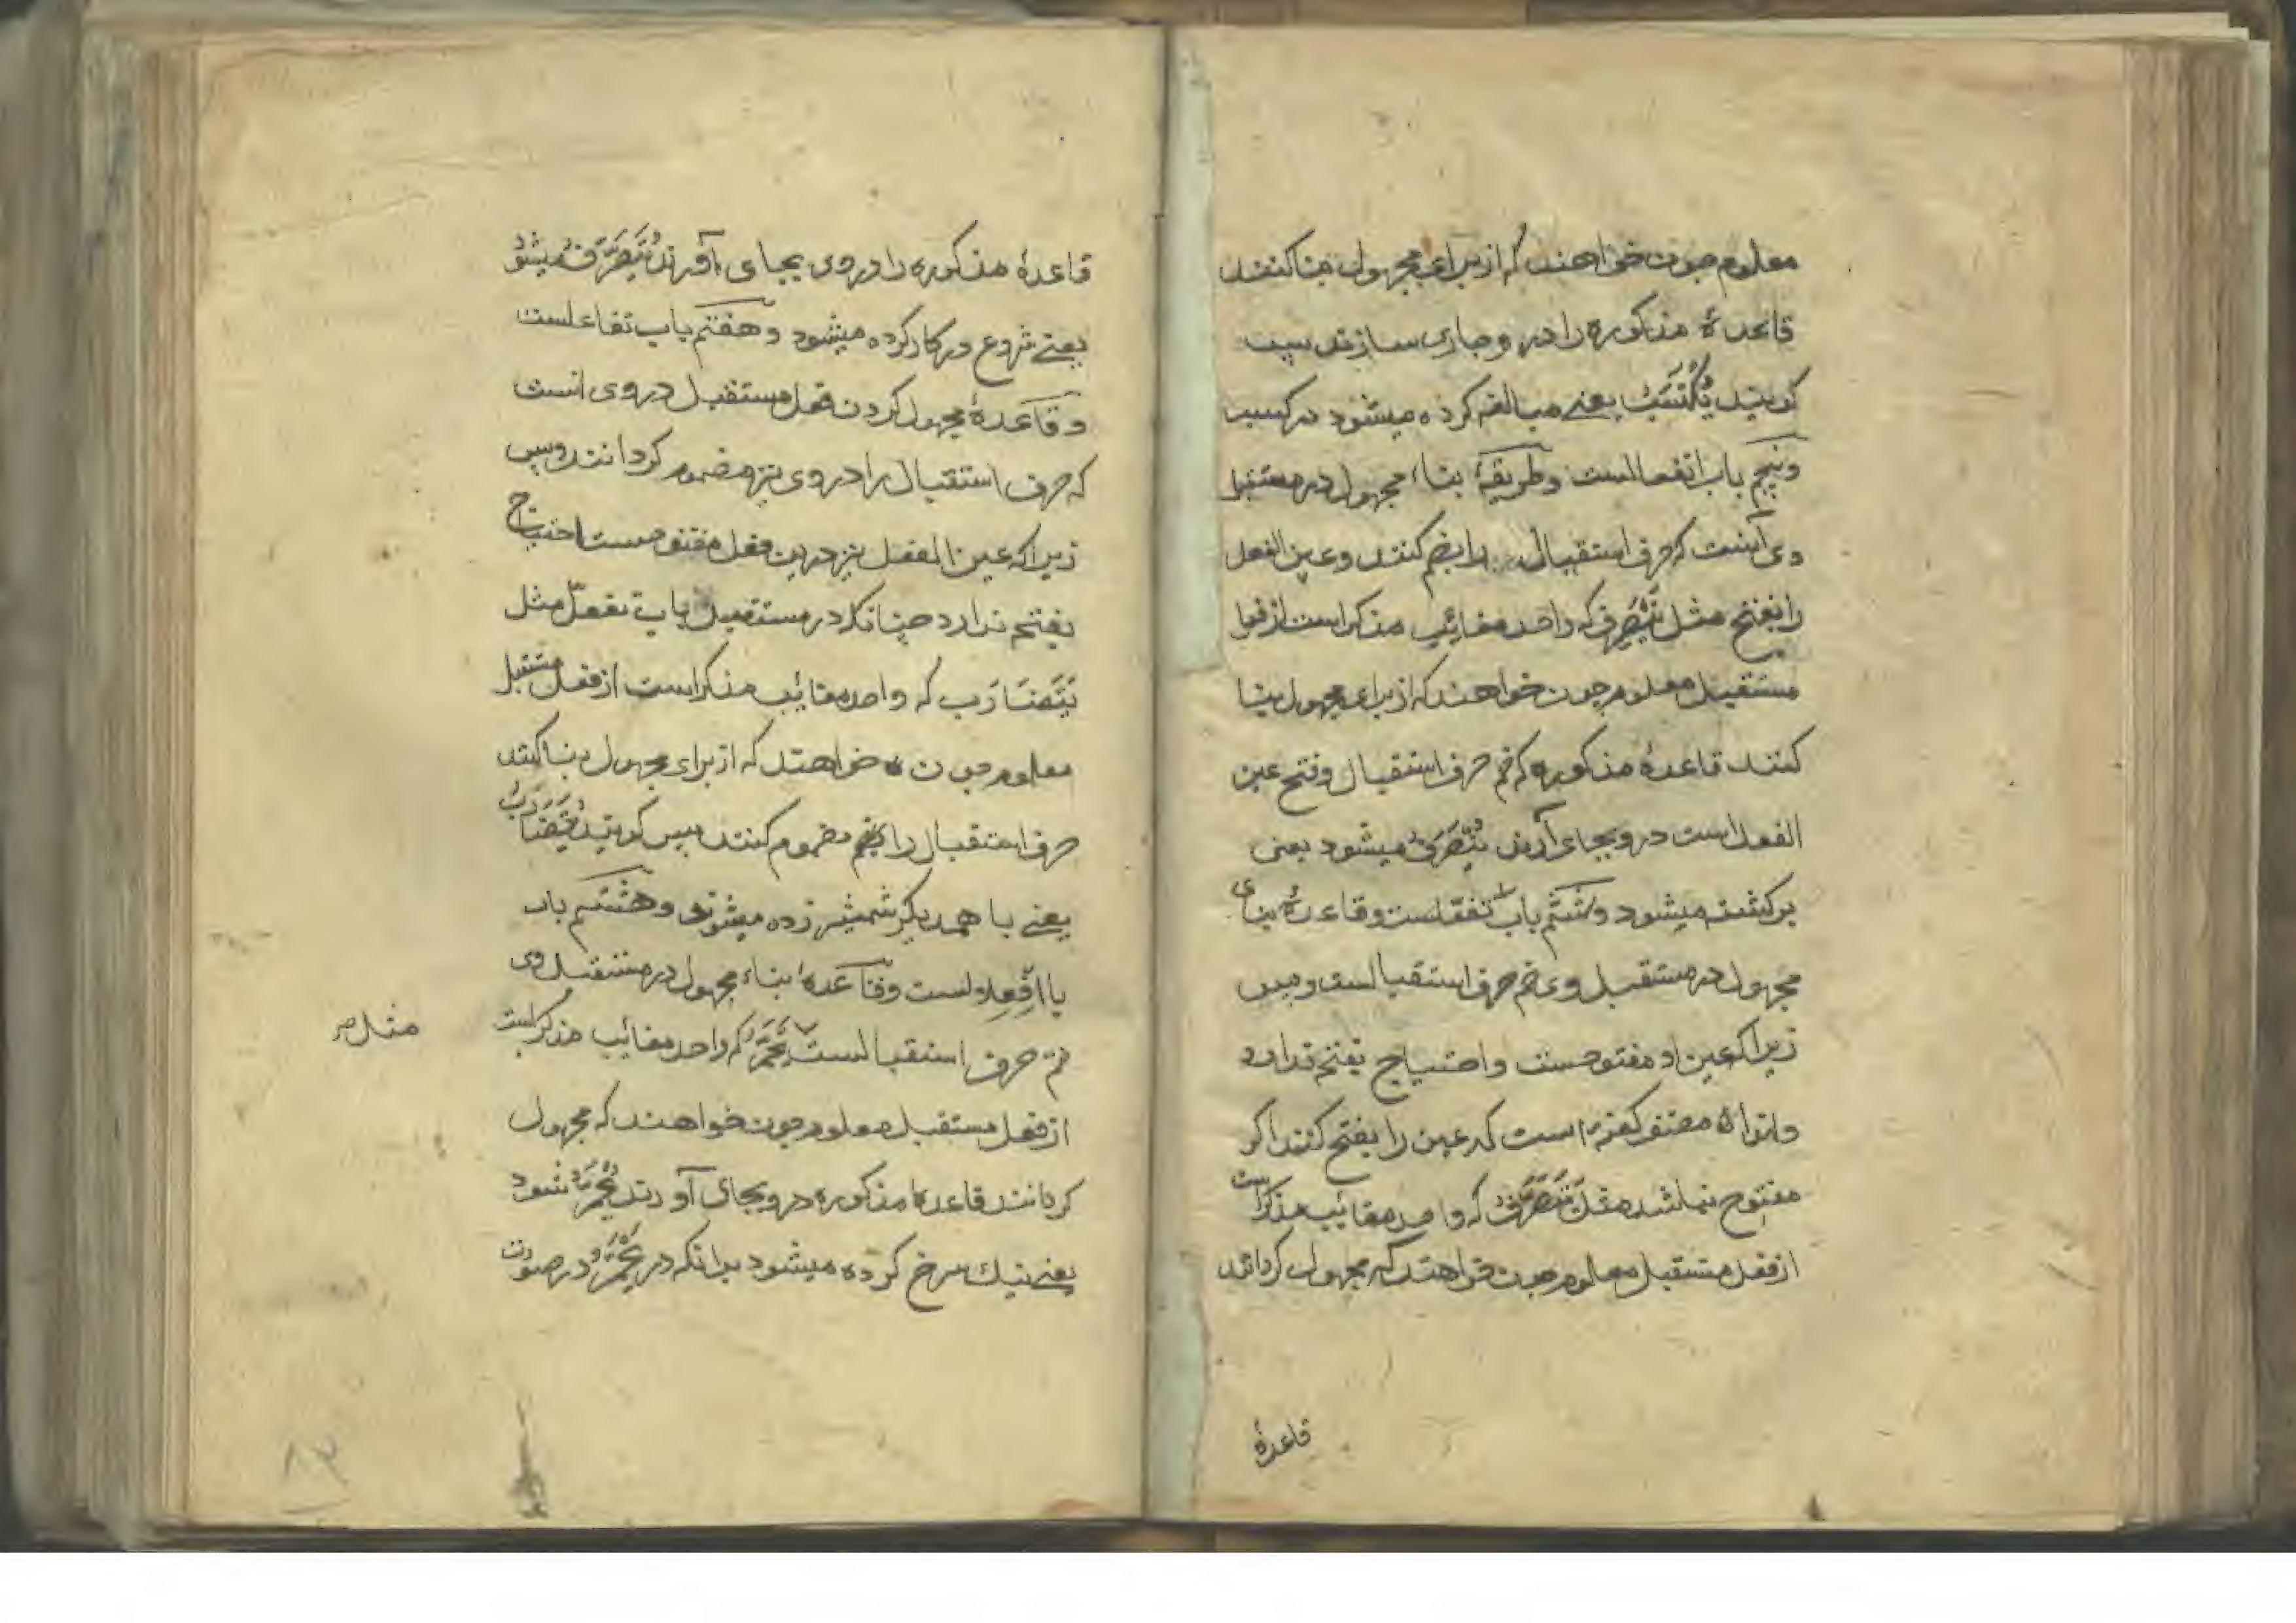 معلوم چون خواهند که از برای مجهول بنا کنند
قاعدهٔ مذکوره را در و جاری سازند پس
کویند یُکْتَسَبُ یعنے مبالغه کرده میشود در کسب
وپنجم باب انفعالست وطریقهٔ بناء مجهول در مستقبل
وی آنست که حرف استقبال را بضم کنند وعین الفعل
را بفتح مثل یَنْصَرِفُ که واحد مغائب مذکر است از فعل
مستقبل معلوم چون خواهند که از برای مجهول بنا
کنند قاعدهٔ مذکوره که ضم حرف استقبال وفتح عین
الفعل است در وبجای آرند یُنْصَرَفُ میشود یعنی
برکشته میشود وششم باب تفعّلست وقاعدهٔ بنای
مجهول در مستقبل وی ضم حرف استقبالست وبس
زیرا که عین او مفتوحست واحتیاج بفتح ندارد
واندا که مصنف کفته است که عین را بفتح کنند اکر
مفتوح نباشد مثل یَتَصَرَّفُ که واحد مغائب مذکر است
از فعل مستقبل معلوم چون خواهند که مجهول کردانند
قاعدهٔ
قاعدهٔ مذکوره را در وی بجای آورند یُتَصَرَّفُ میشود
یعنے شروع در کار کرده میشود وهفتم باب تفاعلست
وقاعدهٔ مجهول کردن فعل مستقبل در وی انست
که حرف استقبال را در وی نیز مضموم کردانند وبس
زیرا که عین الفعل نیز درین فعل مفتوحست احتیاج
بفتح ندارد چنانکه در مستقبل باب تفعّل مثل
یَتَضَارَب که واحد مغائب مذکر است از فعل مستقبل
معلوم چون خواهند که از برای مجهول بنا کنند
حرف استقبال را بضم مضموم کنند پس کویند یُتَضَارَبُ
یعنے با همدیکر شمشیر زده میشوند وهشتم باب
باافعلالست وقاعدهٔ بناء مجهول در مستقبل وی
ضم حرف استقبالست یَحْمَرُّ که واحد مغائب مذکر است
مثل صح
از فعل مستقبل معلوم چون خواهند که مجهول
کردانند قاعدهٔ مذکوره در وبجای آورند یُحْمَرُّ شود
یعنے نیك سرخ کرده میشود بدانکه در یَحْمَرُّ در صورت
۸۳